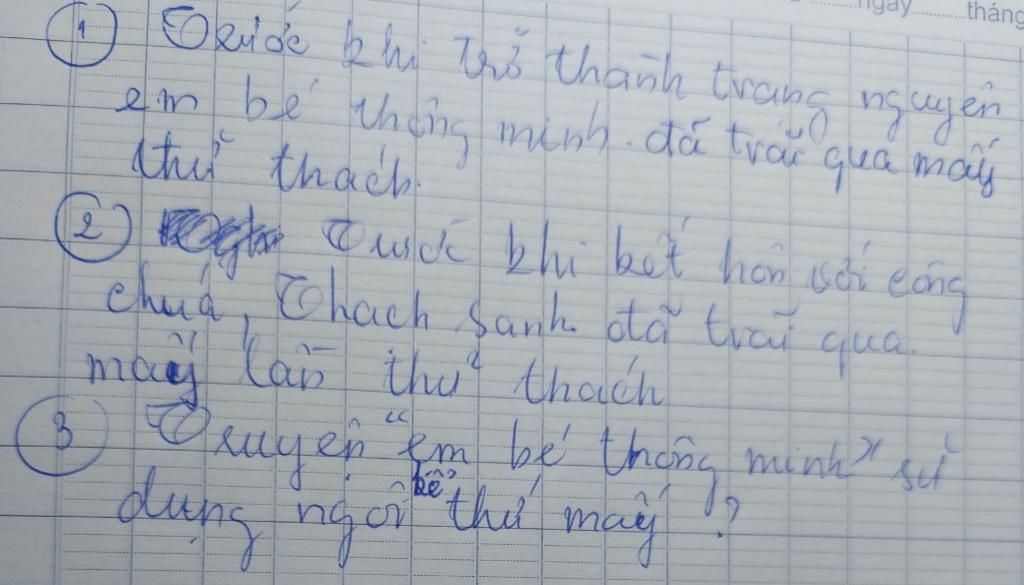 ngày........tháng
① Trước khi trở thành trạng nguyên
em bé thông minh. đã trải qua mấy
thử thách.
② Trước khi kết hôn với công
chúa, Thạch Sanh. đã trải qua.
mấy lần thử thách
③ Truyện "em bé thông minh" sử
dụng ngôi kể thứ mấy !?